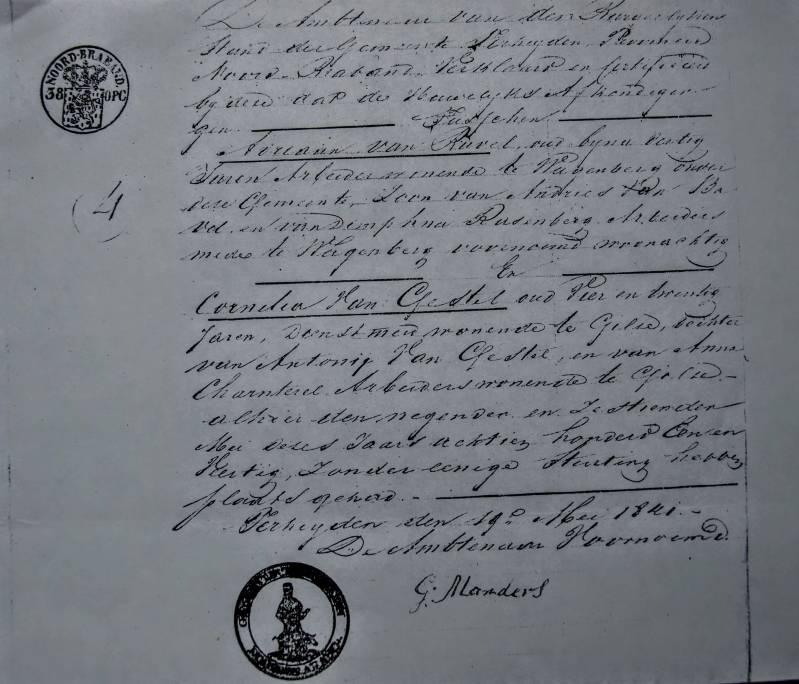 De Ambtenaar van den Burgerlyken
Stand der Gemeente Terheyden, Provincie
Noord-Braband, Verklaard en Certificeerd
by deze dat de Huwelyks Afkondegin-
gen Tusschen
Adriaan van Bavel, oud byna dertig
Jaren Arbeider wonende te Wagenberg onder
deze Gemeente, Zoon van Andries van Ba-
vel en van Dimphna Rasenberg, Arbeiders
mede te Wagenberg voornoemd woonachtig
En
Cornelia Van Gestel oud Vier en twentig
Jaren, Dienstmeid wonende te Gilse, dochter
van Antonij Van Gestel, en van Anna
Arbeiders wonende te Gilse -
alhier den negenden en Zestienden
Mei dezes Jaars achttien honderd Een en
Veertig, Zonder eenige Stuiting hebben
plaats gehad. -
Terheyden den 19n Mei 1841. -
De Ambtenaar Voornoemd.
G. Manders
NOORD-BRABAND
38 OPC
4